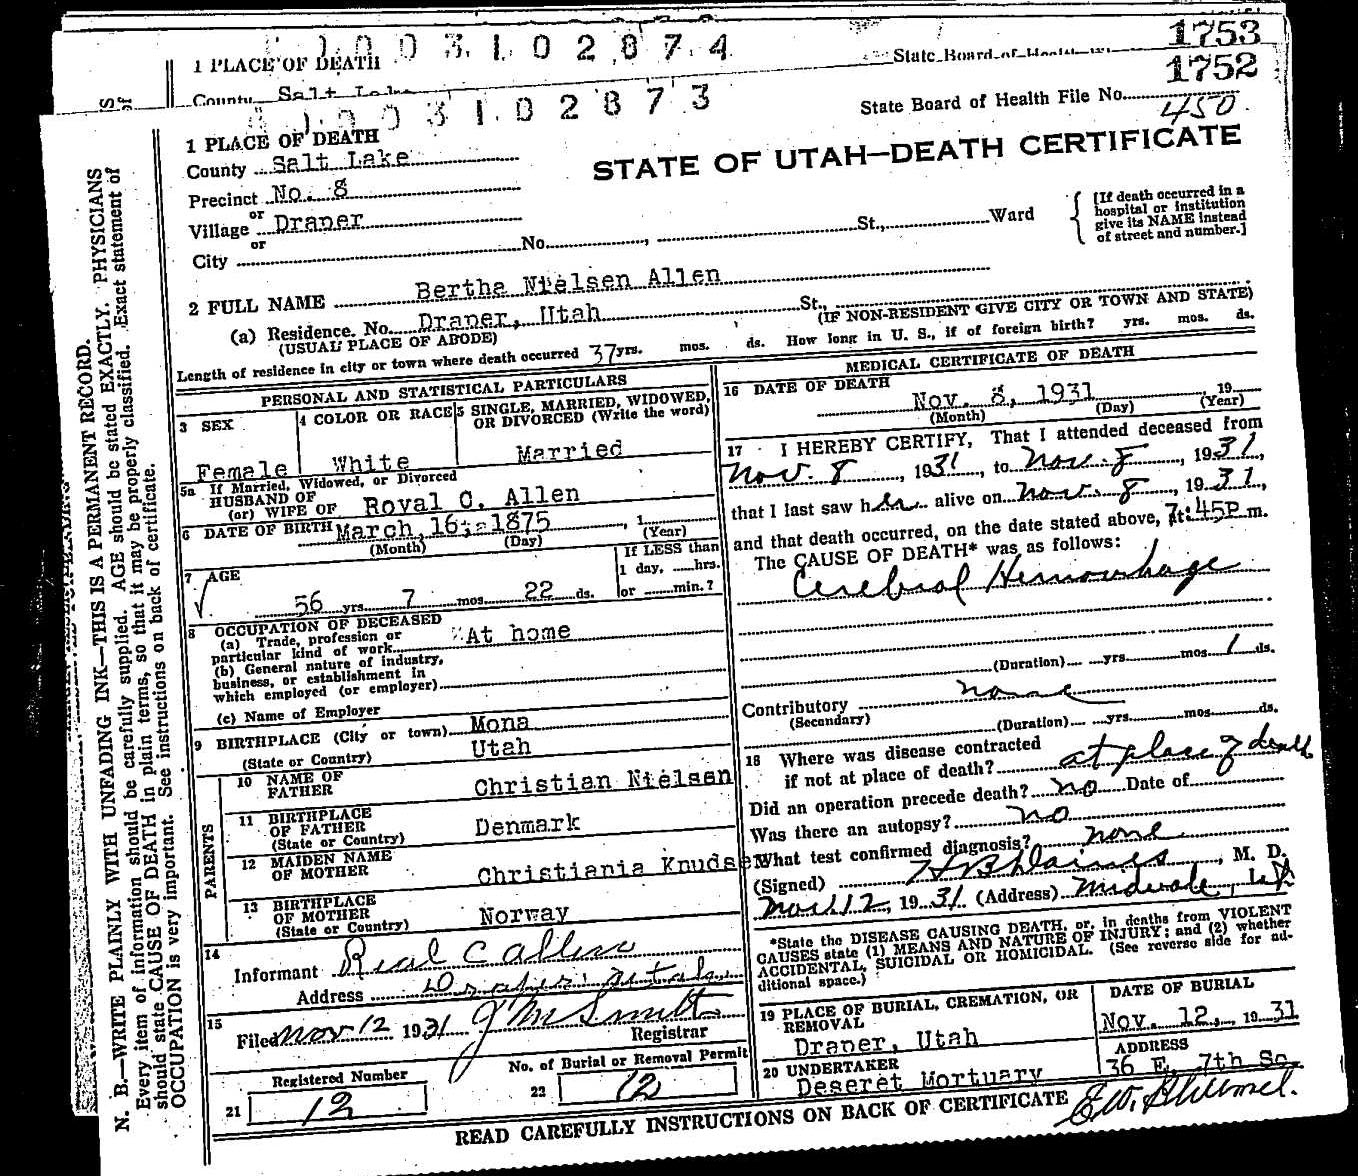 1753
1003102874
1 PLACE OF DEATH
State Board of Health
County Salt Lake
1752
003102873
State Board of Health File No.
450
1 PLACE OF DEATH
County Salt Lake
STATE OF UTAH—DEATH CERTIFICATE
Precinct No. 8
or
Village Draper
or
City No. , St., Ward
[If death occurred in a
hospital or institution
give its NAME instead
of street and number.]
2 FULL NAME Bertha Nielsen Allen
(a) Residence. No. Draper, Utah St.,
(USUAL PLACE OF ABODE) (IF NON-RESIDENT GIVE CITY OR TOWN AND STATE)
Length of residence in city or town where death occurred 37 yrs. mos. ds. How long in U. S., if of foreign birth? yrs. mos. ds.
PERSONAL AND STATISTICAL PARTICULARS
3 SEX
Female
4 COLOR OR RACE
White
5 SINGLE, MARRIED, WIDOWED,
OR DIVORCED (Write the word)
Married
5a If Married, Widowed, or Divorced
HUSBAND OF
(or) WIFE OF Royal C. Allen
6 DATE OF BIRTH March 16, 1875 , 1
(Month) (Day) (Year)
7 AGE
56 yrs. 7 mos. 22 ds.
If LESS than
1 day, hrs.
or min.?
8 OCCUPATION OF DECEASED
(a) Trade, profession or
particular kind of work At home
(b) General nature of industry,
business, or establishment in
which employed (or employer)
(c) Name of Employer
9 BIRTHPLACE (City or town) Mona
(State or Country) Utah
PARENTS
10 NAME OF
FATHER Christian Nielsen
11 BIRTHPLACE
OF FATHER Denmark
(State or Country)
12 MAIDEN NAME
OF MOTHER Christiania Knudsen
13 BIRTHPLACE
OF MOTHER Norway
(State or Country)
14
Informant Real C Allen
Address Draper Utah
15
Filed Nov 12 1931 J M Smith
Registrar
Registered Number
21 12
No. of Burial or Removal Permit
22 12
MEDICAL CERTIFICATE OF DEATH
16 DATE OF DEATH
Nov. 8, 1931 19
(Month) (Day) (Year)
17 I HEREBY CERTIFY, That I attended deceased from
Nov. 8 , 1931, to Nov. 8 , 1931,
that I last saw her alive on Nov. 8 , 1931,
and that death occurred, on the date stated above, at 7:45P m.
The CAUSE OF DEATH* was as follows:
Cerebral Hemorrhage
(Duration) yrs. mos. 1 ds.
Contributory none
(Secondary)
(Duration) yrs. mos. ds.
18 Where was disease contracted
if not at place of death? at place of death
Did an operation precede death? no Date of
Was there an autopsy? no
What test confirmed diagnosis? none
(Signed) H B Daines , M. D.
Nov. 12, 1931 (Address) Midvale, Ut
*State the DISEASE CAUSING DEATH, or, in deaths from VIOLENT
CAUSES state (1) MEANS AND NATURE OF INJURY; and (2) whether
ACCIDENTAL, SUICIDAL OR HOMICIDAL. (See reverse side for ad-
ditional space.)
19 PLACE OF BURIAL, CREMATION, OR
REMOVAL
Draper, Utah
DATE OF BURIAL
Nov. 12, 1931
20 UNDERTAKER
Deseret Mortuary
ADDRESS
36 E. 7th So.
READ CAREFULLY INSTRUCTIONS ON BACK OF CERTIFICATE
N. B.—WRITE PLAINLY WITH UNFADING INK—THIS IS A PERMANENT RECORD.
Every item of information should be carefully supplied. AGE should be stated EXACTLY. PHYSICIANS
should state CAUSE OF DEATH in plain terms, so that it may be properly classified. Exact statement of
OCCUPATION is very important. See instructions on back of certificate.